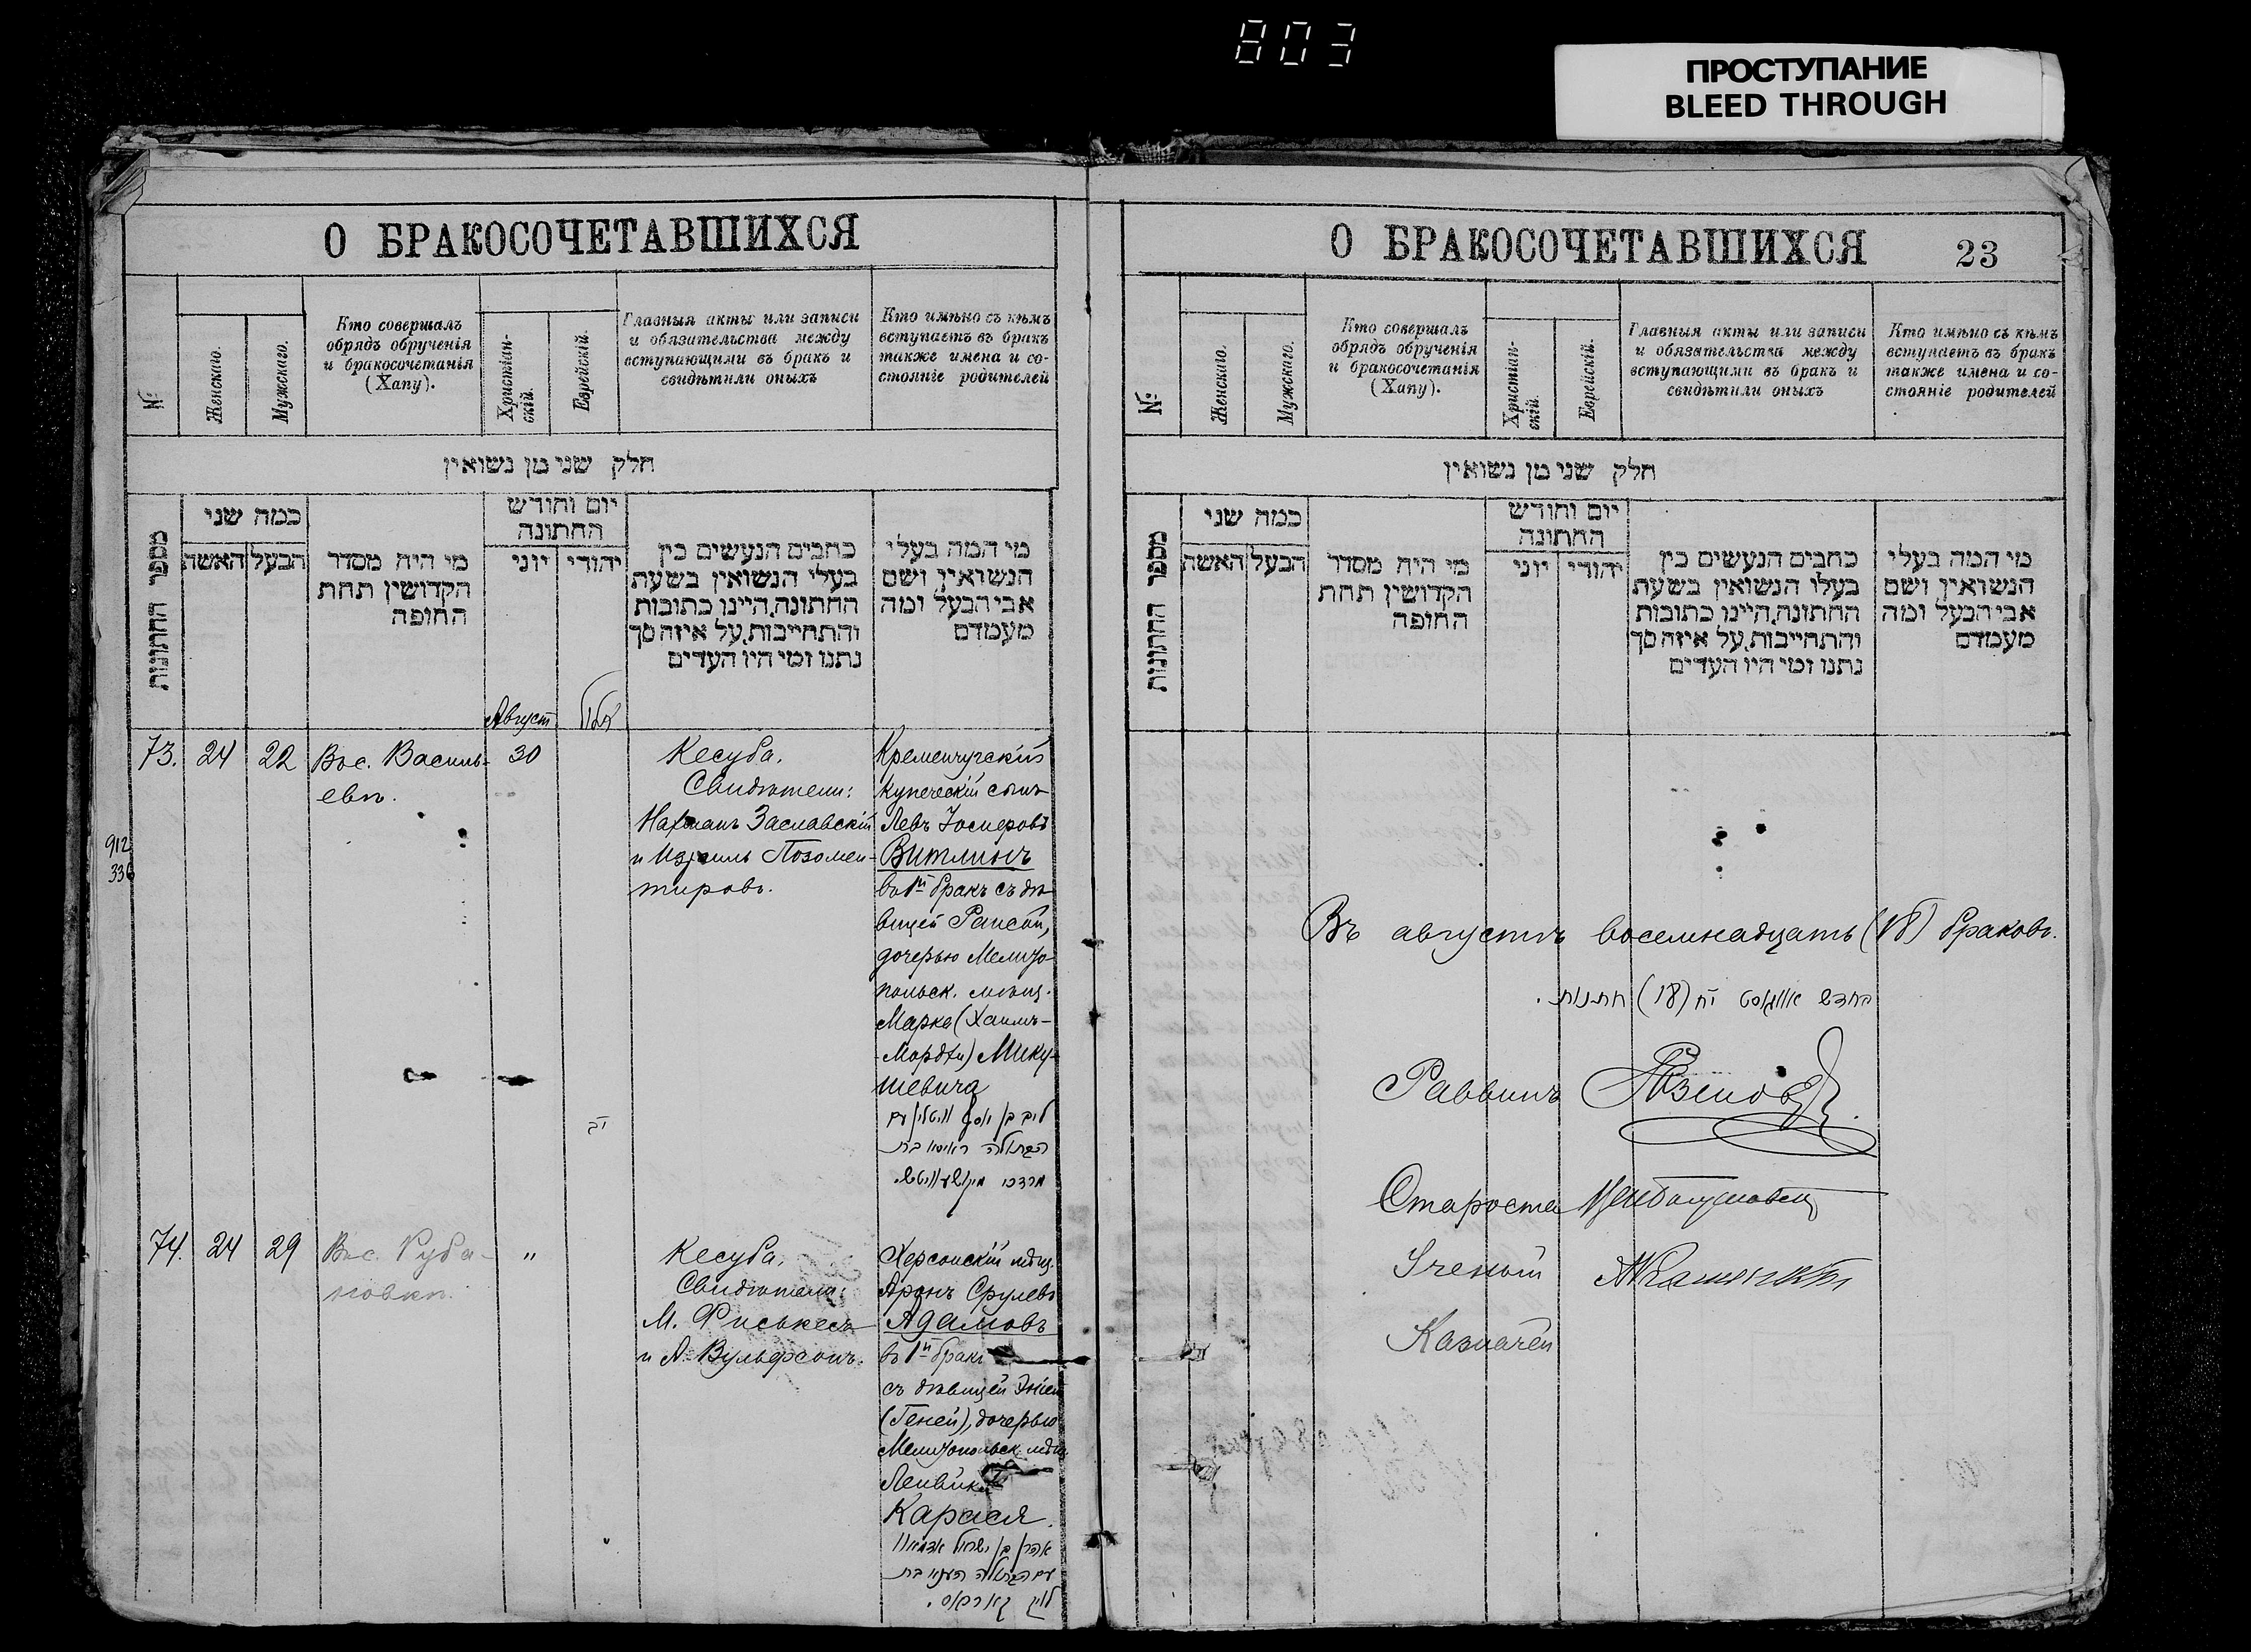 803
ПРОСТУПАНИЕ
BLEED THROUGH
О БРАКОСОЧЕТАВШИХСЯ
№
Женскаго.
Мужскаго.
Кто совершалъ
обрядъ обрученія
и бракосочетанія
(Хапу).
Христіан-
скій.
Еврейскій.
Главныя акты или записи
и обязательства между
вступающими въ бракъ и
свидѣтили оныхъ
Кто имѣно съ кѣмъ
вступаетъ въ бракъ
также имена и со-
стояніе родителей
חלק שני מן נשואין
מספר החתונות
כמה שני
האשה
הבעל
מי היה מסדר
הקדושין תחת
החופה
יום וחודש
החתונה
יוני
יהודי
כתבים הנעשים בין
בעלי הנשואין בשעת
החתונה,היינו כתובות
והתחייבות,על איזה סך
נתנו ומי היו העדים
מי המה בעלי
הנשואין ושם
אבי הבעל ומה
מעמדם
Август
אלול
73.
24
22
Вос. Василь-
евъ.
30
יב
Кесуба.
Свидѣтели:
Нахманъ Заславскій
и Израиль Позамен-
тировъ.
Кременчугскій
купеческій сынъ
Левъ Іосифовъ
Витлинъ
въ 1й бракъ съ дѣ-
вицей Раисой,
дочерью Мелито-
польск. мѣщ.
Марка (Хаимъ-
-Мордхи) Мику-
шевича
ליב בן יוסף וויטלין עם
הבתולה ראיסא בת
מרדכי
912
336
74.
24
29
"
Кесуба.
Свидѣтели:
М. Фиськесъ
и А. Вульфсонъ.
Херсонскій мѣщ.
Аронъ Срулевъ
Адамовъ
въ 1й бракъ
съ дѣвицей
(Геней), дочерью
Мелитопольск. мѣщ.
Карася.
אהרן בן ישראל אדאמאוו
עם הבתולה העניא בת
О БРАКОСОЧЕТАВШИХСЯ
23
№
Женскаго.
Мужскаго.
Кто совершалъ
обрядъ обрученія
и бракосочетанія
(Хапу).
Христіан-
скій.
Еврейскій.
Главныя акты или записи
и обязательства между
вступающими въ бракъ и
свидѣтили оныхъ
Кто имѣно съ кѣмъ
вступаетъ въ бракъ
также имена и со-
стояніе родителей
חלק שני מן נשואין
מספר החתונות
כמה שני
האשה
הבעל
מי היה מסדר
הקדושין תחת
החופה
יום וחודש
החתונה
יוני
יהודי
כתבים הנעשים בין
בעלו הנשואין בשעת
החתונה,היינו כתובות
והתחייבות,על איזה סך
נתנו ומי היו העדים
מי המה בעלי
הנשואין ושם
אבי הבעל ומה
מעמדם
Въ августѣ восемнадцать (18) браковъ.
בחדש אוגוסט יח (18) חתונות.
Раввинъ
Староста
Ученый
Казначей